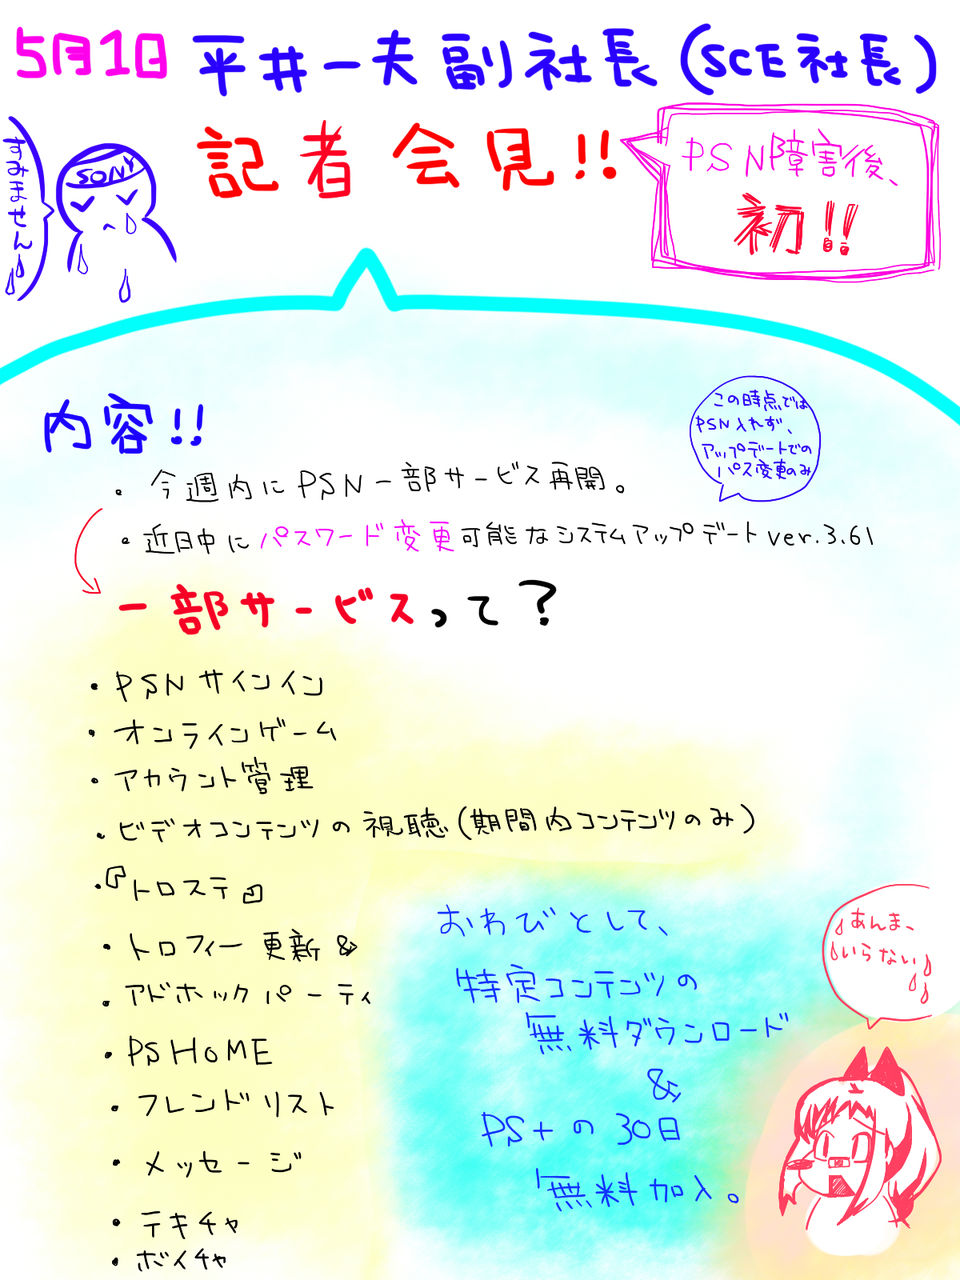 5月1日 平井一夫副社長(SCE社長)
記者会見!!
PSN障害後、
初!!
すみません
SONY
内容!!
この時点では
PSN入れず、
アップデートでの
パス変更のみ
・今週内にPSN一部サービス再開。
・近日中にパスワード変更可能なシステムアップデートver.3.61
一部サービスって?
・PSNサインイン
・オンラインゲーム
・アカウント管理
・ビデオコンテンツの視聴(期間内コンテンツのみ)
・『トロステ』
・トロフィー更新&
・アドホックパーティ
・PSHOME
・フレンドリスト
・メッセージ
・テキチャ
・ボイチャ
おわびとして、
特定コンテンツの
無料ダウンロード
&
PS+の30日
無料加入。
あんま、
いらない